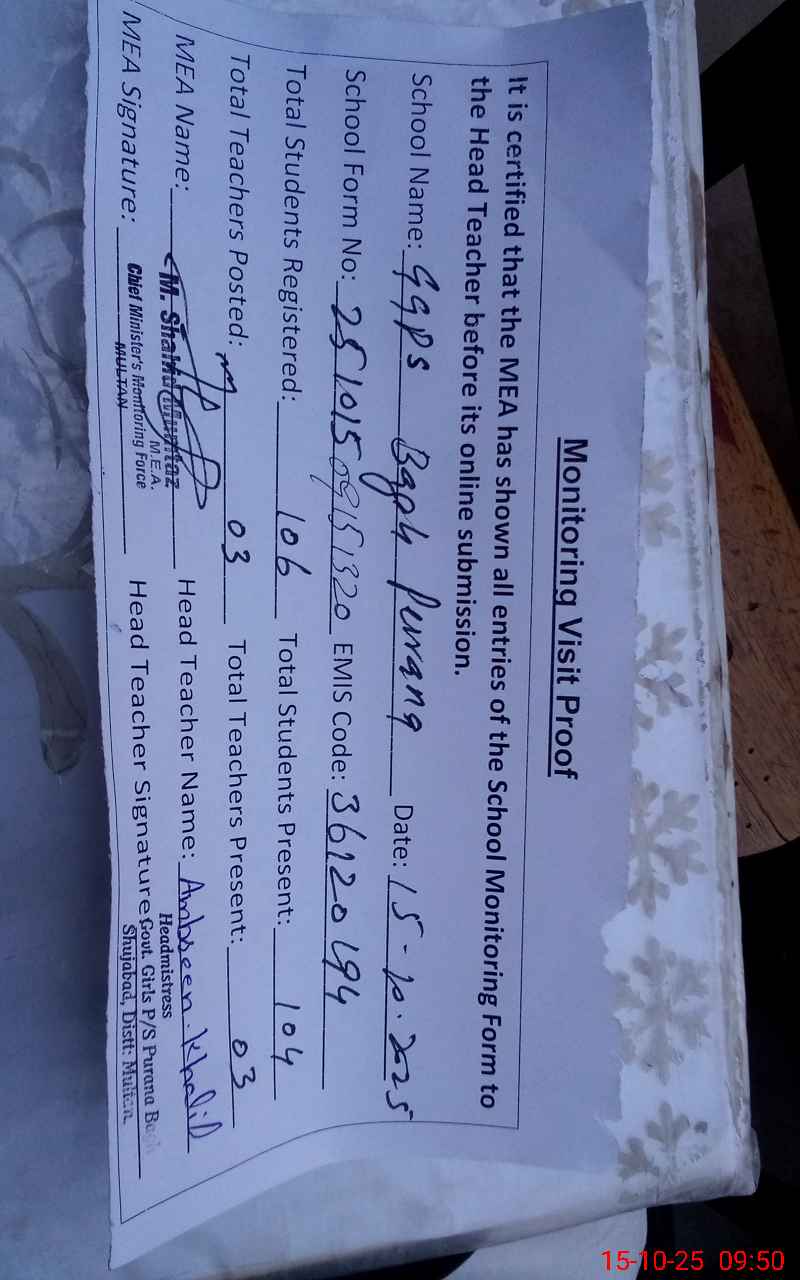 Monitoring Visit Proof
It is certified that the MEA has shown all entries of the School Monitoring Form to
the Head Teacher before its online submission.
School Name: GGPS Bagh Purana Date: 15-10-2025
School Form No: 25101509151320 EMIS Code: 36120194
Total Students Registered: 106 Total Students Present: 104
Total Teachers Posted: 03 Total Teachers Present: 03
MEA Name: Head Teacher Name: Ambreen Khalid
M. Shahid Mumtaz
M.E.A.
Chief Minister's Monitoring Force
MULTAN
MEA Signature: Head Teacher Signature:
Headmistress
Govt. Girls P/S Purana
Shujabad, Distt: Multan.
15-10-25 09:50